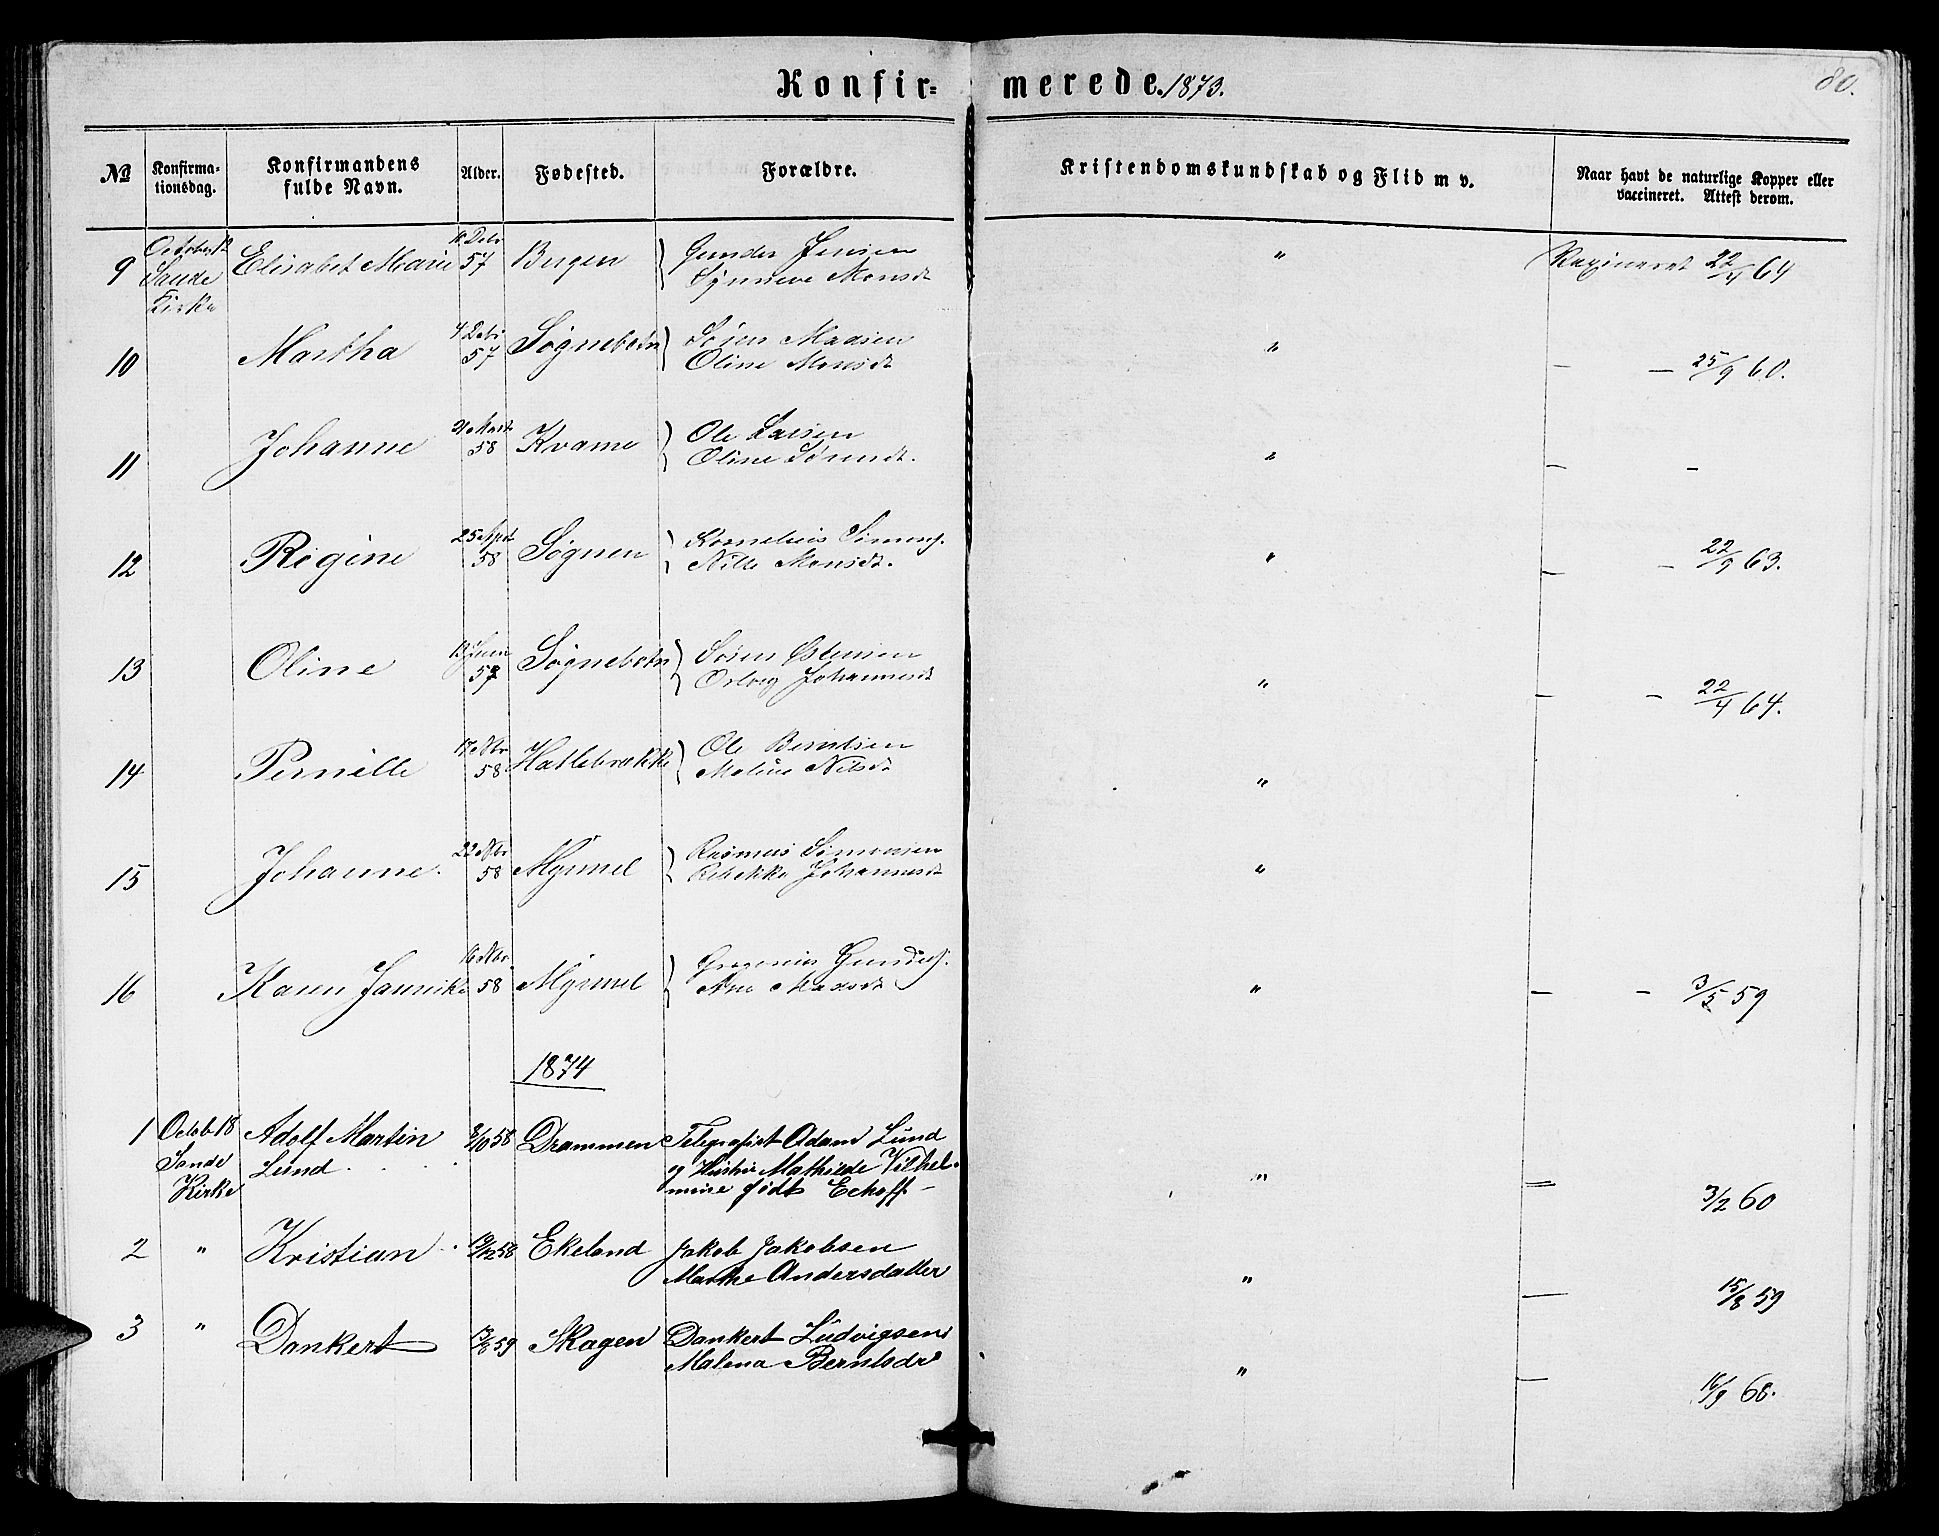 Konfir= merede. 1873. 80.
No Konfirma-tionsdag. Konfirmandens fulde Navn. Alder. Fødested. Forældre. Kristendomskundskab og Flid m v. Naar havt de naturlige Kopper eller vaccineret. Attest derom.
9 October 12 Sande Kirke Elisabet Marie 57 Bergen Gunder Jensen
Synneve Monsdt " Vaxineret 22/4 64
10 Martha 4 Debr 57 Søgnebotn Søren Madsen
Oline Monsdt " — — 25/9 60.
11 Johanne 21 Marts 58 Kvame Ole Larsen
Oline Sørensdt. " — —
12 Regine 25 Sept 58 Søgnen Kornelius Simens.
Nille Monsdt. " — — 22/9 63.
13 Oline 57 Søgnebotn Søren Østensen
Johannesdt " — — 22/4 64.
14 Pernille 17 Nbr 58 Hatlebrekke Ole Berntsen
Maline Nilsdt "
15 Johanne. 22 Nbr 58 Myrmel Rasmus Simonsen
Rebekka Johannesdt "
16 Karen Janrike 16 Nbr. 58 Myrmel Gregorius Gunders.
Ane Madsdt " — — 3/5 59
1874
1 Octob 18 Sande Kirke Adolf Martin Lund 8/10 58 Drammen Telegrafist Adam Lund
og Hustru Mathilde Vilhel-
mine født Echoff — " — 3/2 60
2 " Kristian 19/12 58 Ekeland Jakob Jakobsen
Marthe Andersdatter " — 15/8 59
3 " Dankert 13/8 59 Skagen Dankert Ludvigsen
Malena Berntsdr " — 16/9 68.